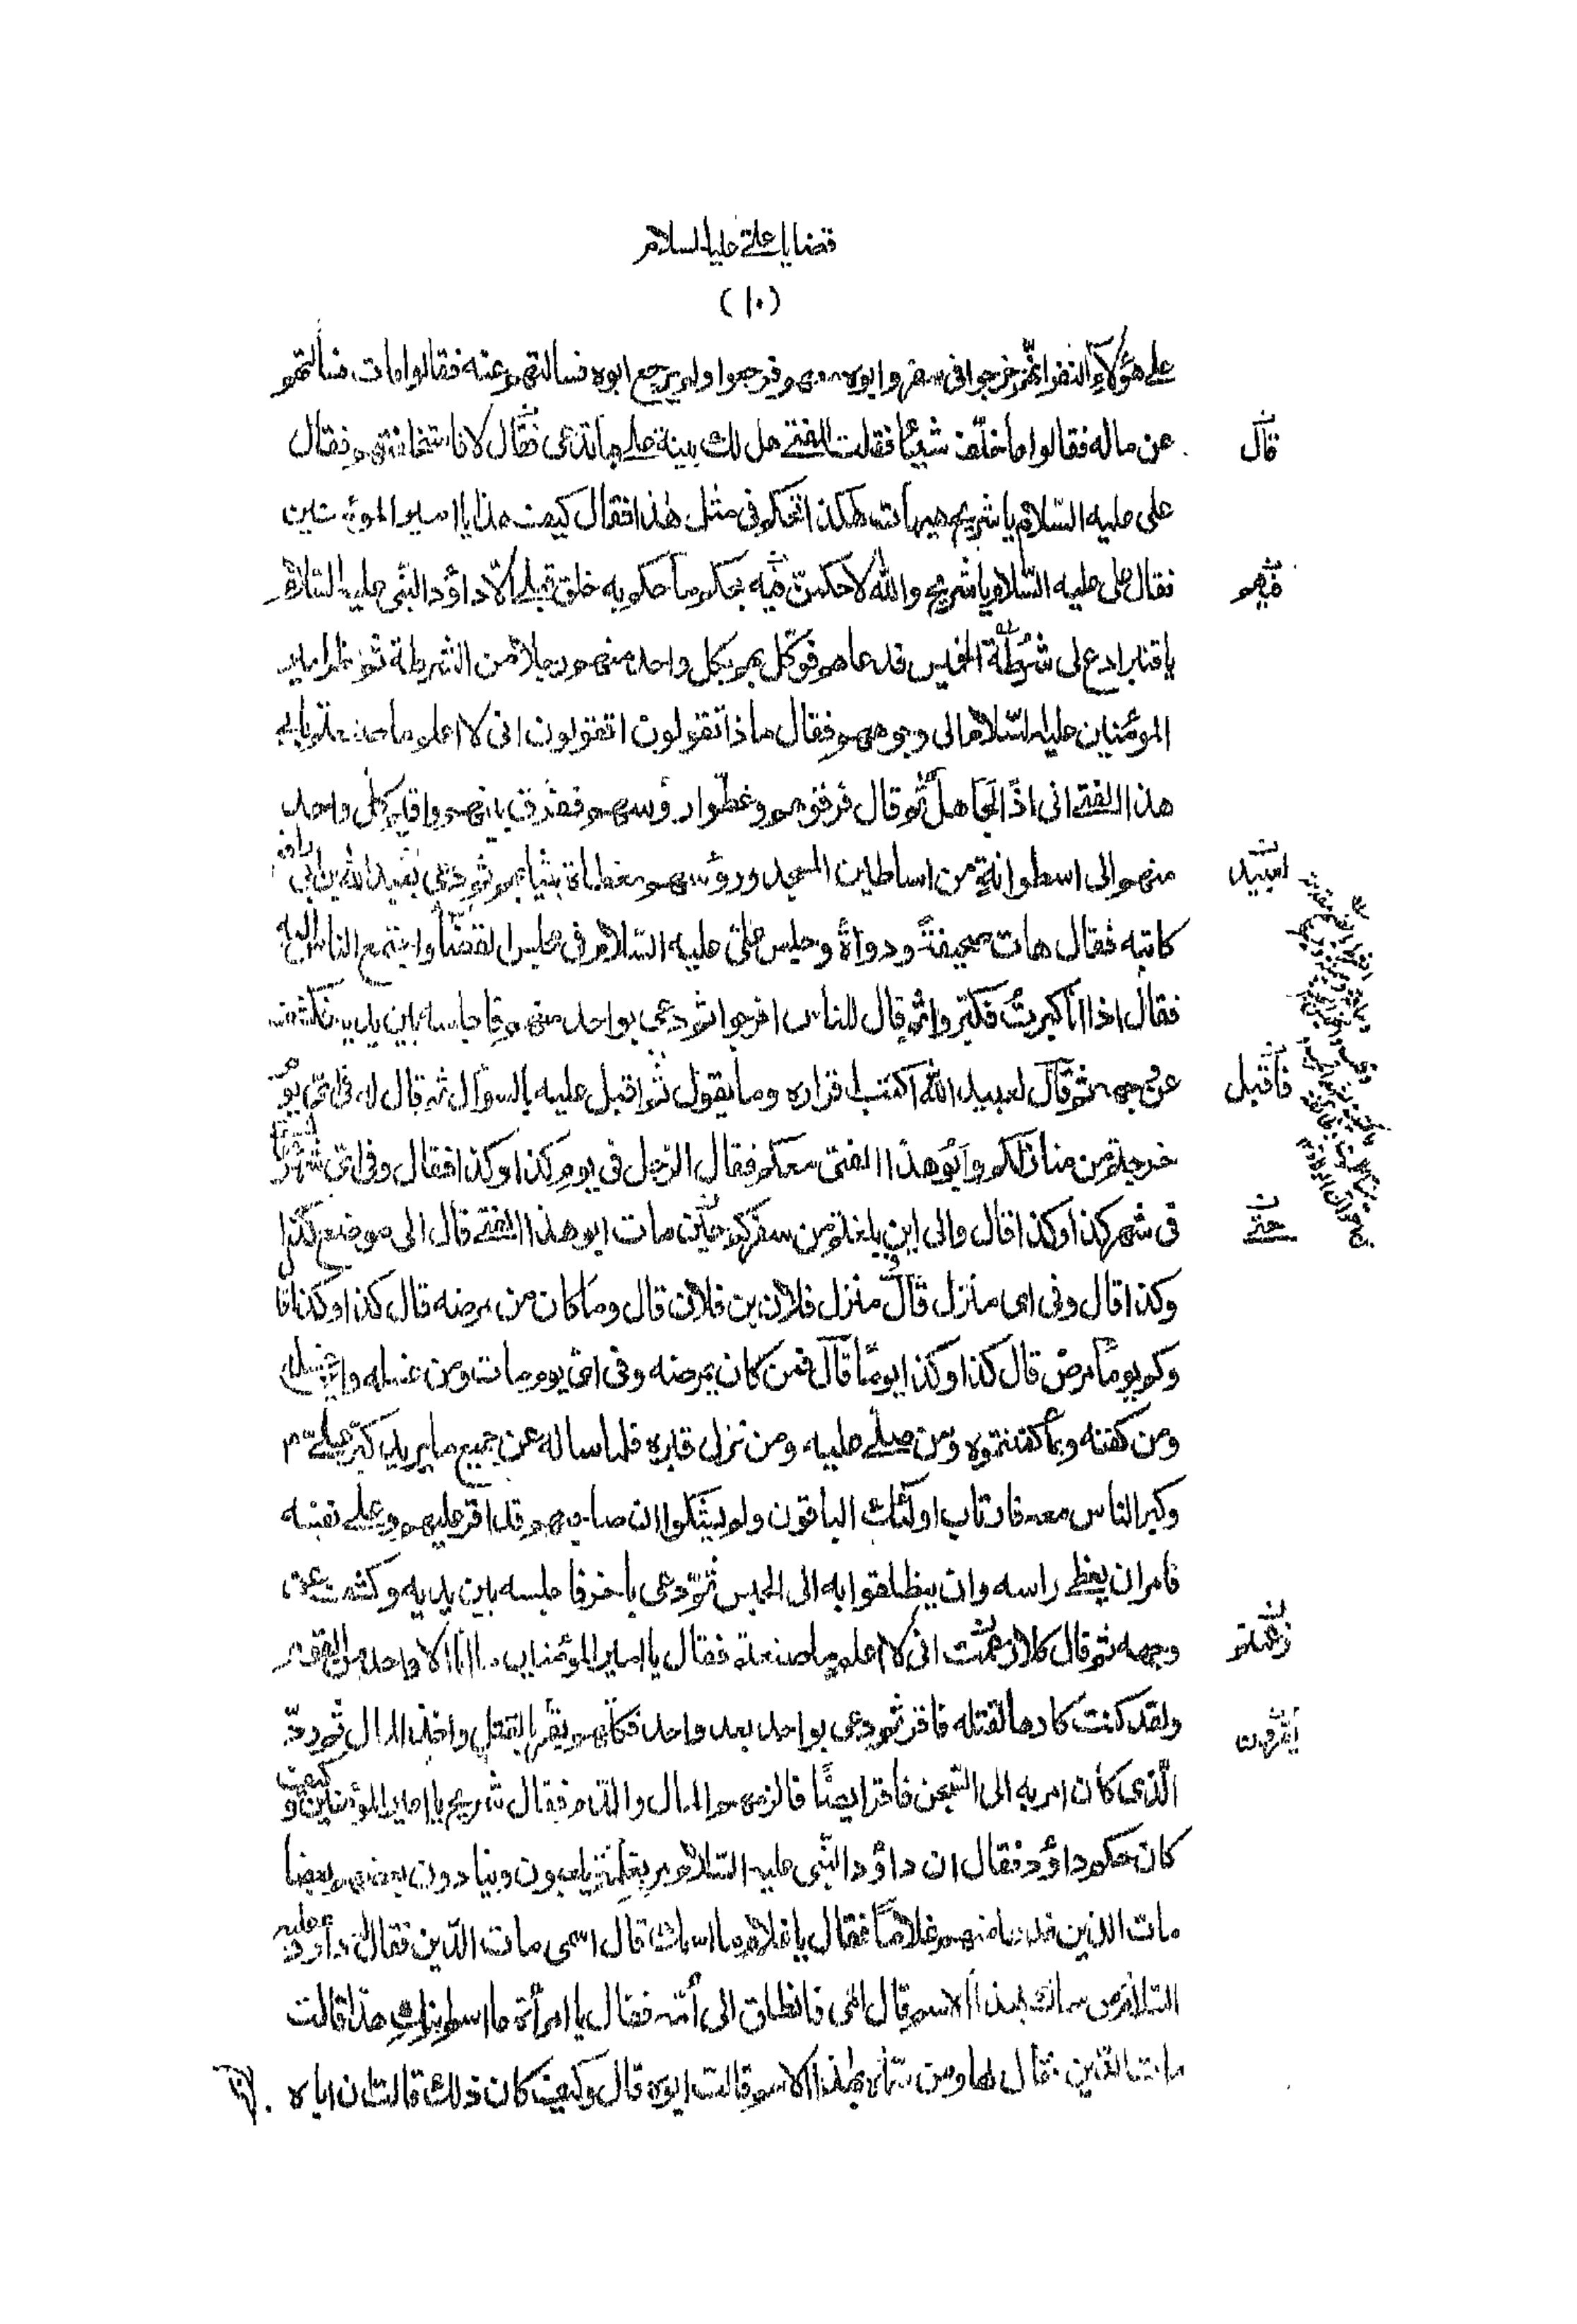 قضایا علی علیه السلام
(۱۰)
علی هؤلاء النفر انهم خرجوا فی سفر وابوه معهم فرجعوا ولم یرجع ابوه فسالتهم عنه فقالوا مات فسألتهم
عن ماله فقالوا ما خلّف شیئًا فقلت للفتی هل لك بینة علی ما تدعی فقال لا فاستحلفتهم فقال
قال
علی علیه السّلام یا شریح هیهات هکذا تحکم فی مثل هذا فقال کیف هذا یا امیر المؤمنین
فقال علی علیه السّلام یا شریح والله لاحکمنّ فیه بحکم ما حکم به خلق قبلی الّا داؤد النّبی علیه السّلام
فیهم
یا قنبر ادع لی شرطة الخمیس فدعاهم فوکّل بهم بکل واحد منهم رجلا من الشرطة ثم نظر امیر
المؤمنین علیه السّلام الی وجوههم فقال ماذا تقولون اتقولون انی لا اعلم ما صنعتم بابی
هذا الفتی انی اذًا لجاهل ثم قال فرقوهم وغطّوا رؤسهم ففرق بینهم واقیم کل واحد
منهم الی اسطوانةٍ من اساطین المسجد ورؤسهم مغطاة بثیابهم ثم دعی بعبید الله بن ابی رافع
لعبید
کاتبه فقال هات صحیفةً ودواةً وجلس علی علیه السّلام فی مجلس القضآء واجتمع الناس الیه
فقال اذا انا کبرتُ فکبّروا ثم قال للناس افرجوا ثم دعی بواحد منهم فاجلسه بین یدیه فکشف
عن وجهه ثم قال لعبید الله اکتب اقراره وما یقول ثم اقبل علیه بالسؤال ثم قال له فی ای یوم
فاقبل
خرجتم من منازلکم وابو هذا الفتی معکم فقال الرّجل فی یوم کذا وکذا فقال وفی ای شهر قال
فی شهر کذا وکذا قال والی این بلغتم من سفرکم حین مات ابو هذا الفتی قال الی موضع کذا
حتی
وکذا قال وفی ای منزل قال منزل فلان بن فلان قال وما کان من مرضه قال کذا وکذا قال
وکم یومًا مرض قال کذا وکذا یومًا قال فمن کان یمرضه وفی ای یوم مات ومن غسله واین غسله
ومن کفنه وبما کفنتموه ومن صلّی علیه ومن نزل قبره فلما ساله عن جمیع ما یرید کبّر علیّ ؑم
وکبر الناس معه فارتاب اولئك الباقون ولم یشکوا ان صاحبهم قد اقر علیهم وعلی نفسه
فامر ان یغطی راسه وان ینطلقوا به الی الحبس ثم دعی باخر فاجلسه بین یدیه وکشف عن
وجهه ثم قال کلا زعمت انی لا اعلم ما صنعتم فقال یا امیر المؤمنین ما انا الا واحد من القوم
زعمتم
ولقد کنت کارها لقتله فاقر ثم دعی بواحد بعد واحد فکلهم یقر بالقتل واخذ المال ثم ردّ
یقرون
الّذی کان امر به الی السّجن فاقر ایضًا فالزمهم المال والدّم فقال شریح یا امیر المؤمنین وکیف
کان حکم داؤد فقال ان داؤد النّبی علیه السّلام مر بغلمة یلعبون وینادون بعضهم بعضا
مات الدین فدعا منهم غلامًا فقال یا غلام ما اسمك قال اسمی مات الدّین فقال داؤد علیه
السّلام من سمّاك بهذا الاسم قال امّی فانطلق الی أمّه فقال یا امرأة ما اسم ابنكِ هذا قالت
مات الدّین فقال لها ومن سمّاه بهذا الاسم قالت ابوه قال وکیف کان ذلك قالت ان اباه